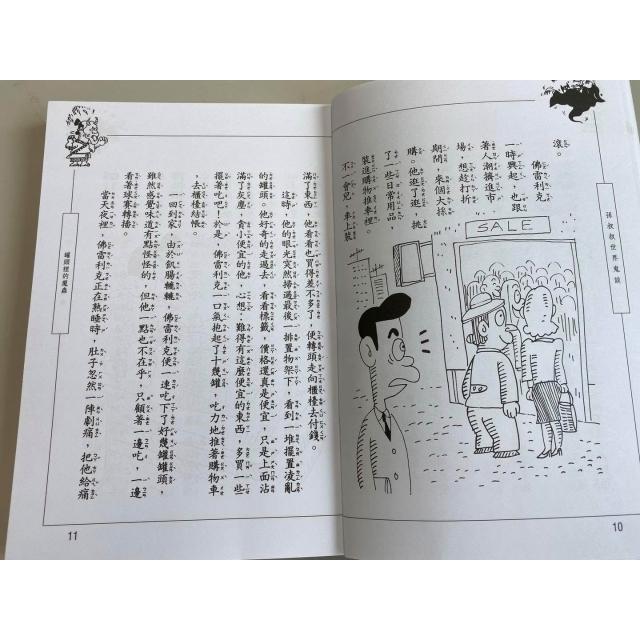 孫叔叔世界鬼談
滾。
佛雷利克
一時興起，也跟
著人潮擠進市
場，想趁打折
期間，來個大採
購。他逛了逛，挑
了一些日常用品
裝進購物推車裡。
不一會兒，車上裝
SALE
10
滿了東西，他看看也買得差不多了，便轉頭走向櫃檯去付錢。
這時，他的眼光突然掃過最後一排置物架下，看到一堆擺置凌亂
的罐頭，他好奇的走過去，看看標籤，價格還真是便宜，只是上面沾
滿了灰塵。貪小便宜的他，心想：難得有這麼便宜的東西，多買一些
擺著吃吧！於是，佛雷利克一口氣抱起了十幾罐，吃力地推著購物車
，去櫃檯結帳。
一回到家，由於飢腸轆轆，佛雷利克便一連吃下了好幾罐罐頭，
雖然感覺味道有點怪怪的，但他一點也不在乎，只顧著一邊吃，一邊
看著球賽轉播。
當天夜裡，佛雷利克正在熟睡時，肚子忽然一陣劇痛，把他給痛
罐頭裡的魔蟲
11